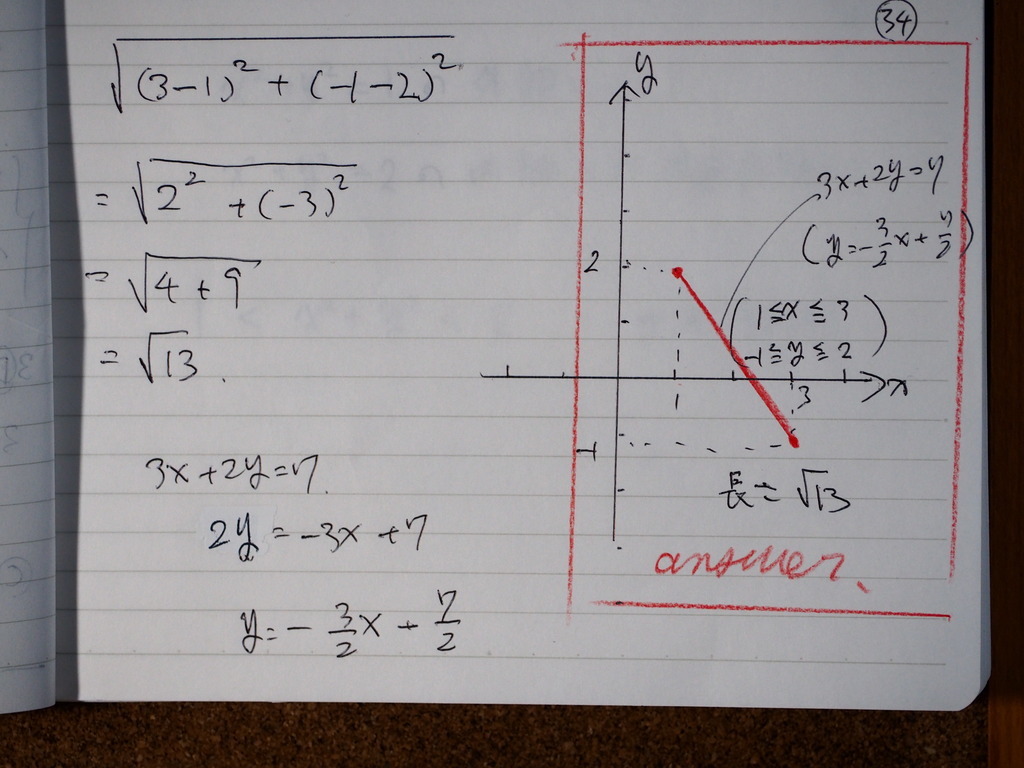 34
√((3-1)² + (-1-2)²)
= √(2² + (-3)²)
= √(4+9)
= √13.
3x+2y=7.
2y=-3x+7
y=-3/2x+7/2
y
3x+2y=7
(y=-3/2x+7/2)
2
(1≦x≦3
-1≦y≦2)
x
1
3
-1
長さ=√13
answer.